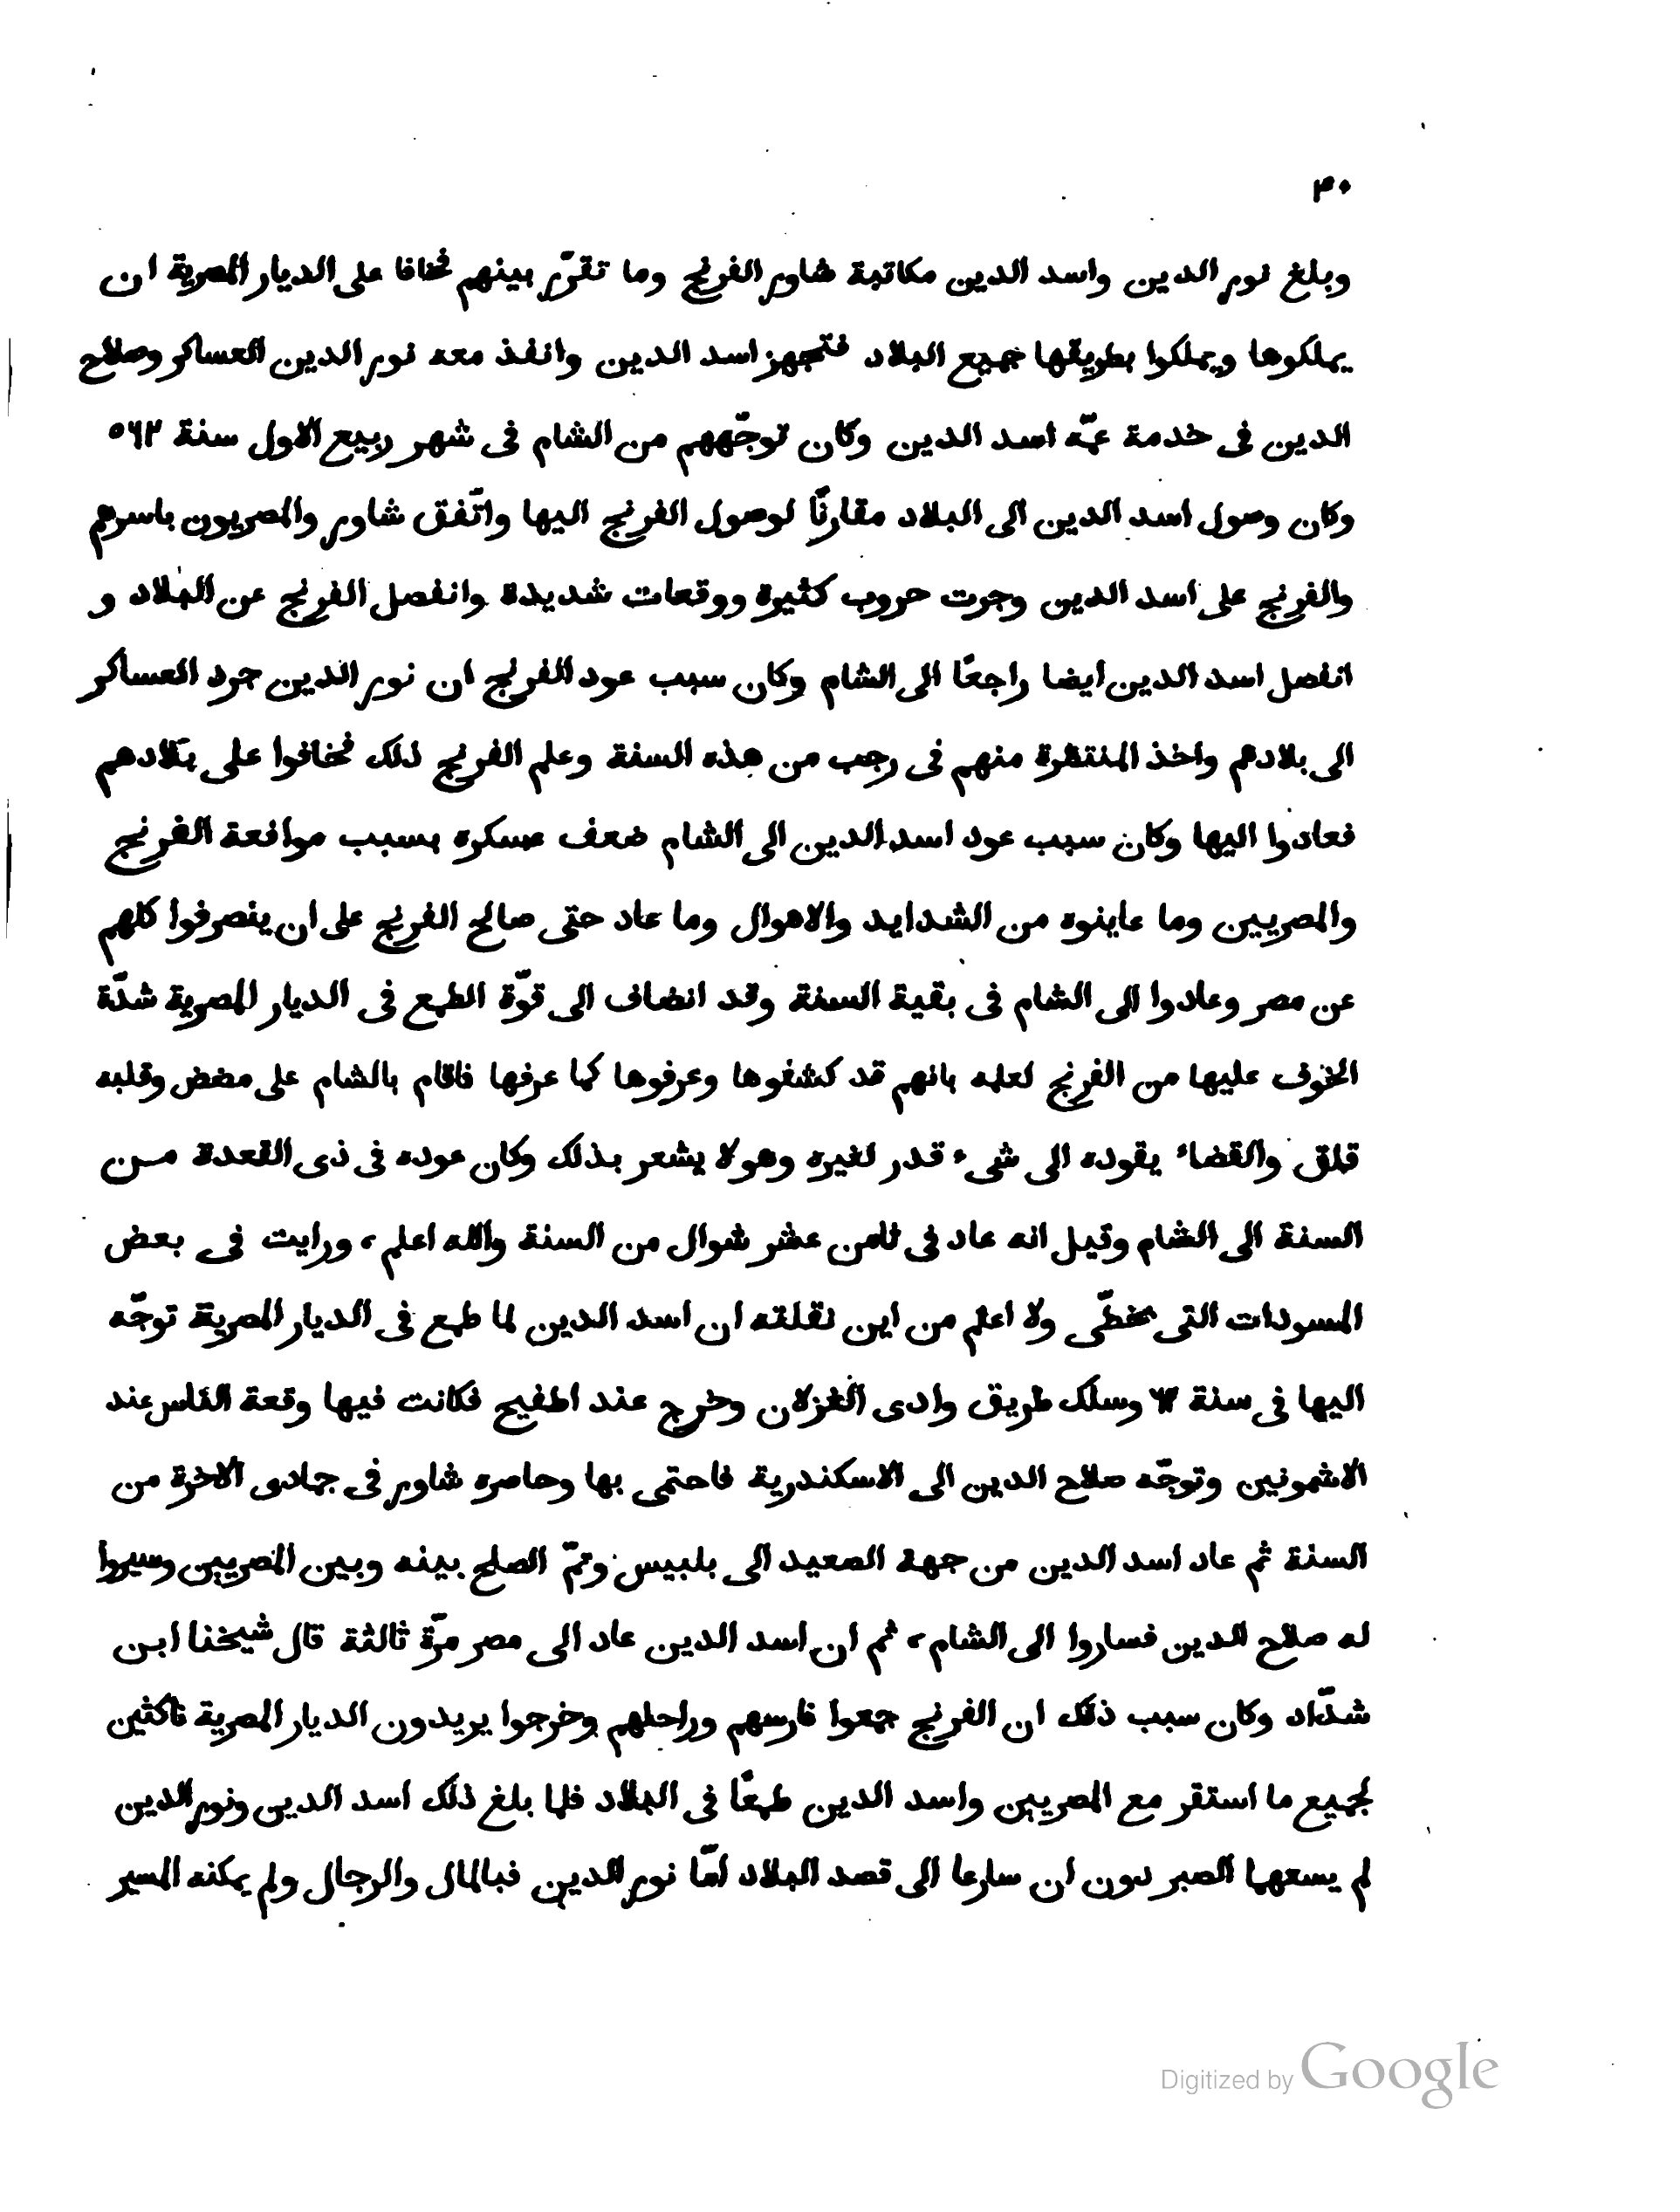 ٣٠
وبلغ نور الدين واسد الدين مكاتبة شاور الفرنج وما تقرّر بينهم فخافا على الديار المصرية ان
يملكوها ويملكوا بطريقها جميع البلاد فتجهز اسد الدين وانفذ معه نور الدين العساكر وصلاح
الدين فى خدمة عمّه اسد الدين وكان توجّههم من الشام فى شهر ربيع الاول سنة ٥٦٢
وكان وصول اسد الدين الى البلاد مقارنًا لوصول الفرنج اليها واتّفق شاور والمصريون باسرهم
والفرنج على اسد الدين وجرت حروب كثيرة ووقعات شديدة وانفصل الفرنج عن البلاد و
انفصل اسد الدين ايضا راجعًا الى الشام وكان سبب عود الفرنج ان نور الدين جرد العساكر
الى بلادهم واخذ المنتظرة منهم فى رجب من هذه السنة وعلم الفرنج ذلك فخافوا على بلادهم
فعادوا اليها وكان سبب عود اسد الدين الى الشام ضعف عسكره بسبب مواقعة الفرنج
والمصريين وما عاينوه من الشدايد والاهوال وما عاد حتى صالح الفرنج على ان ينصرفوا كلهم
عن مصر وعادوا الى الشام فى بقية السنة وقد انضاف الى قوّة الطمع فى الديار المصرية شدّة
الخوف عليها من الفرنج لعلمه بانهم قد كشفوها وعرفوها كما عرفها فاقام بالشام على مضض وقلبه
قلق والقضاء يقوده الى شىء قدر لغيره وهو لا يشعر بذلك وكان عوده فى ذى القعدة من
السنة الى الشام وقيل انه عاد فى ثامن عشر شوال من السنة والله اعلم، ورايت فى بعض
المسودات التى بخطّى ولا اعلم من اين نقلته ان اسد الدين لما طمع فى الديار المصرية توجّه
اليها فى سنة ٦٢ وسلك طريق وادى الغزلان وخرج عند اطفيح فكانت فيها وقعة الناس عند
الاشمونين وتوجّه صلاح الدين الى الاسكندرية فاحتمى بها وحاصره شاور فى جمادى الاخرة من
السنة ثم عاد اسد الدين من جهة الصعيد الى بلبيس وتمّ الصلح بينه وبين المصريين وسيروا
له صلاح الدين فساروا الى الشام، ثم ان اسد الدين عاد الى مصر مرّة ثالثة قال شيخنا ابن
شدّاد وكان سبب ذلك ان الفرنج جمعوا فارسهم وراجلهم وخرجوا يريدون الديار المصرية ناكثين
لجميع ما استقر مع المصريين واسد الدين طمعًا فى البلاد فلما بلغ ذلك اسد الدين ونور الدين
لم يسعهما الصبر دون ان سارعا الى قصد البلاد امّا نور الدين فبالمال والرجال ولم يمكنه المسير
Digitized by Google